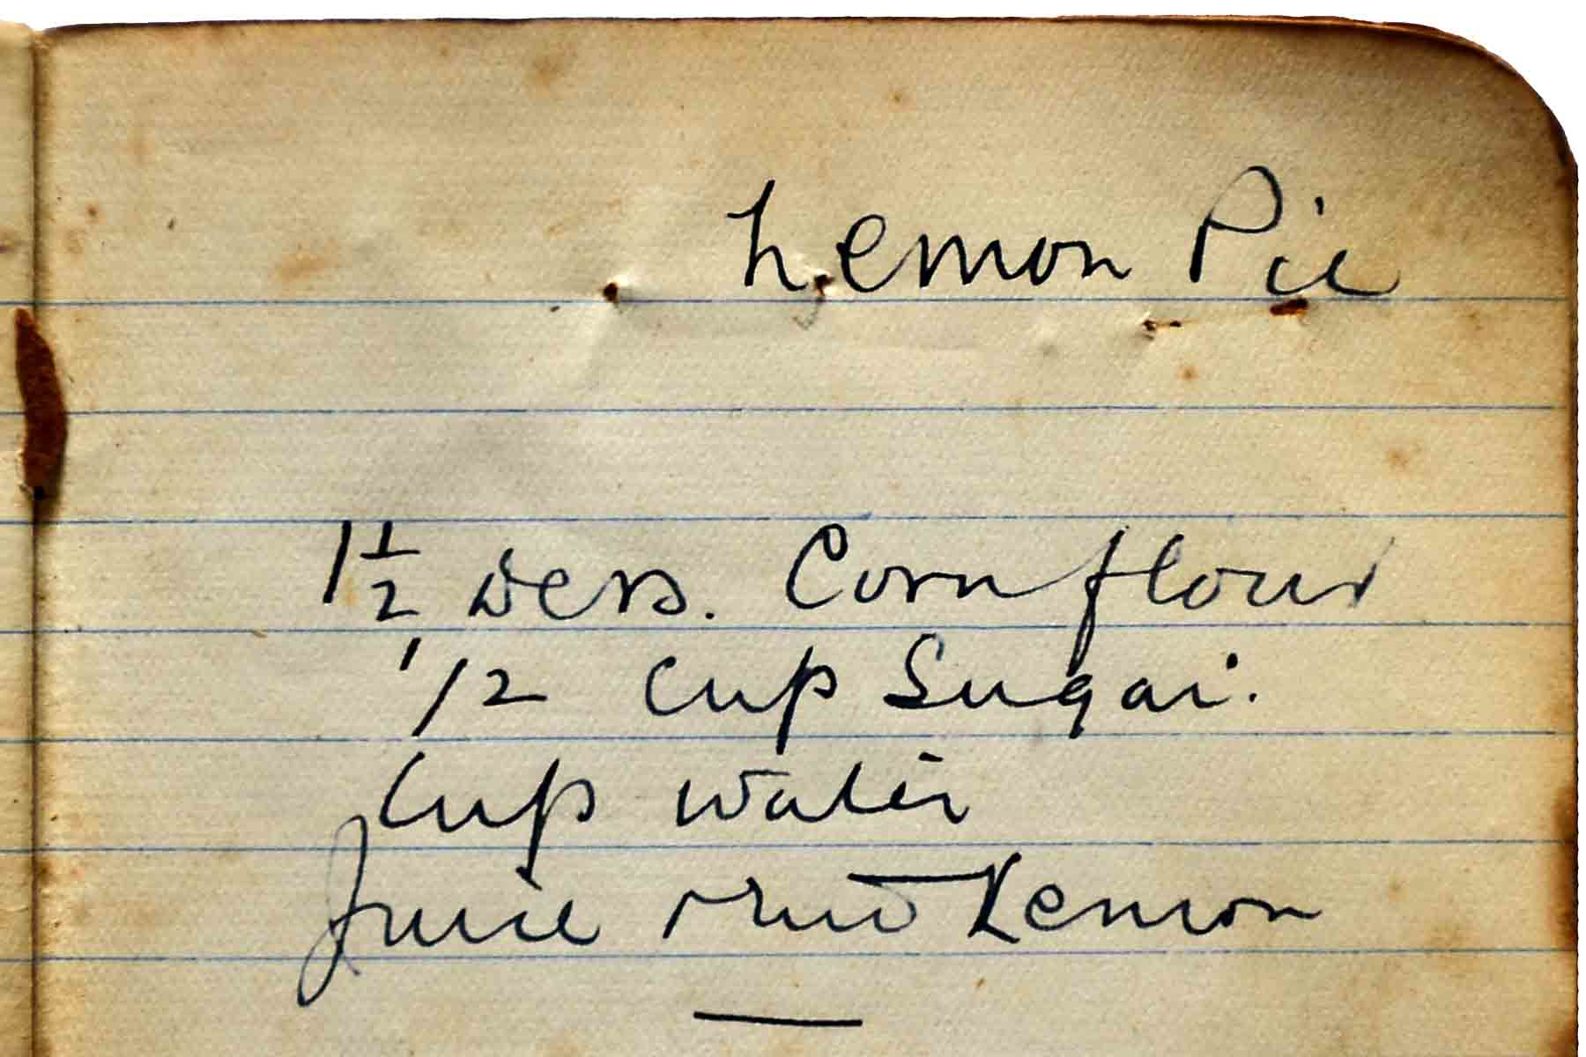 Lemon Pie
1 1/2 Dess. Cornflour
1/2 Cup Sugar.
Cup water
Juice rind Lemon